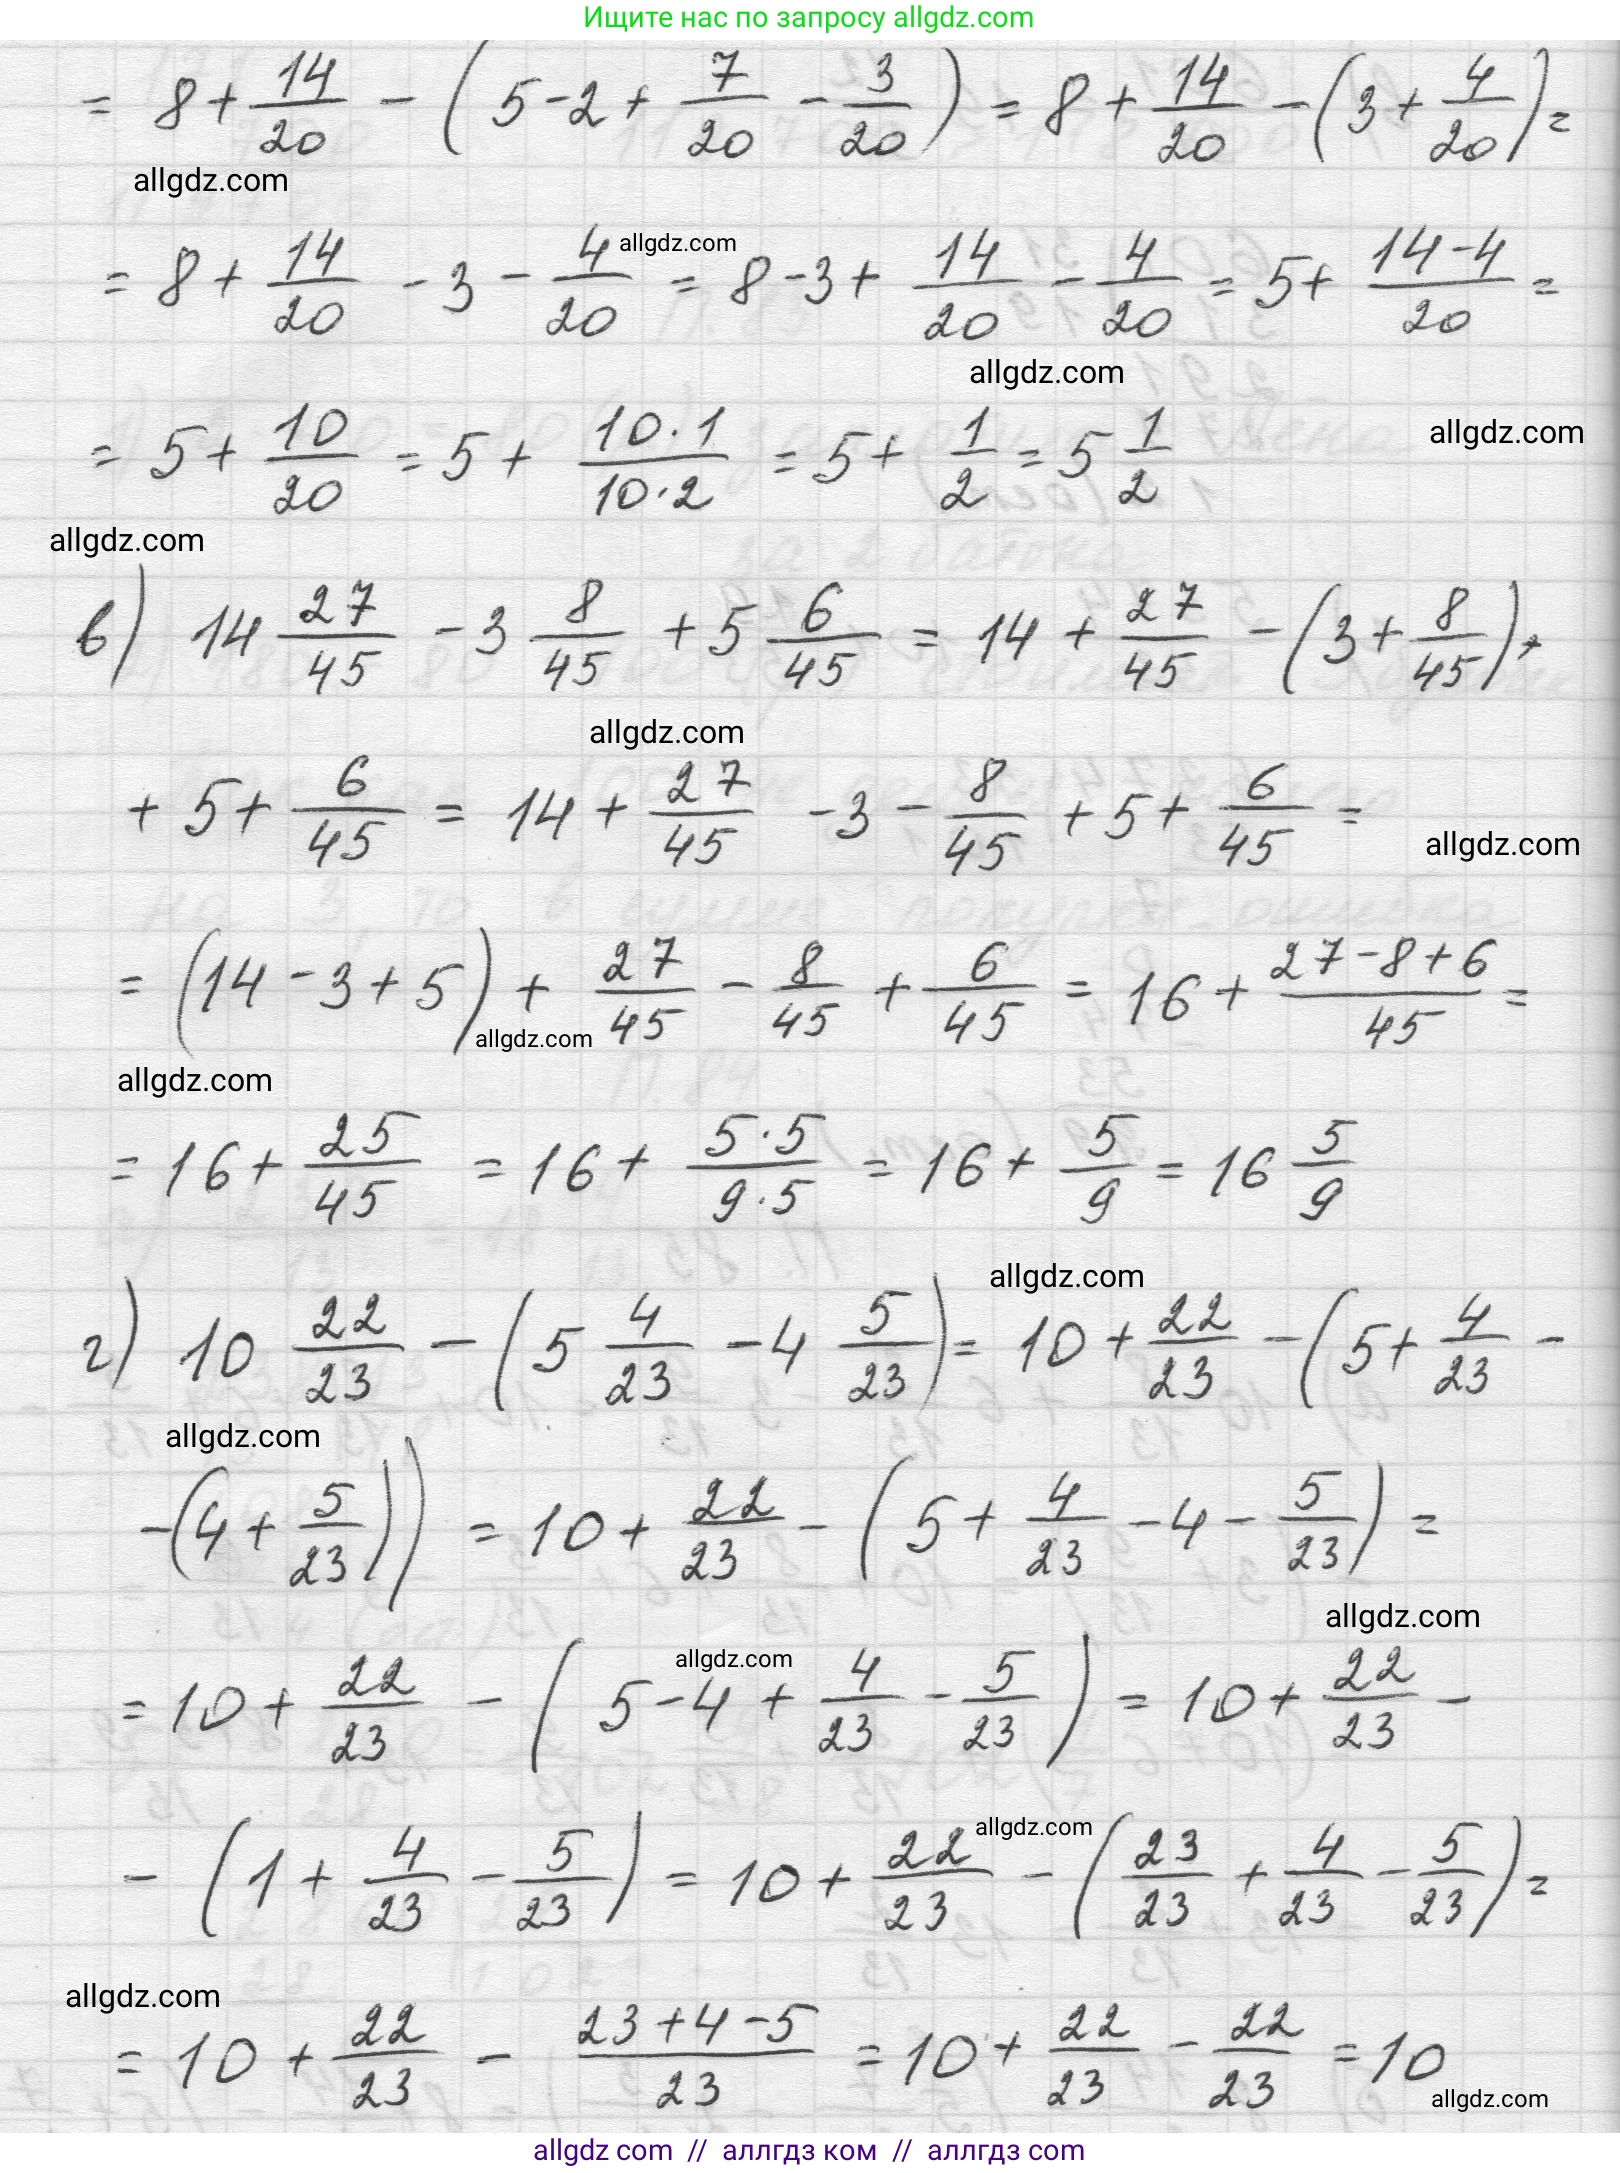 Ищите нас по запросу allgdz.com
= 8 + 14/20 - ( 5 - 2 + 7/20 - 3/20 ) = 8 + 14/20 - (3 + 4/20) =
allgdz.com
= 8 + 14/20 - 3 - 4/20 = 8 - 3 + 14/20 - 4/20 = 5 + (14-4)/20 =
allgdz.com
allgdz.com
= 5 + 10/20 = 5 + (10·1)/(10·2) = 5 + 1/2 = 5 1/2
allgdz.com
allgdz.com
в) 14 27/45 - 3 8/45 + 5 6/45 = 14 + 27/45 - (3 + 8/45) +
allgdz.com
+ 5 + 6/45 = 14 + 27/45 - 3 - 8/45 + 5 + 6/45 =
allgdz.com
= (14 - 3 + 5) + 27/45 - 8/45 + 6/45 = 16 + (27-8+6)/45 =
allgdz.com
allgdz.com
= 16 + 25/45 = 16 + (5·5)/(9·5) = 16 + 5/9 = 16 5/9
allgdz.com
г) 10 22/23 - (5 4/23 - 4 5/23) = 10 + 22/23 - (5 + 4/23 -
allgdz.com
- (4 + 5/23)) = 10 + 22/23 - (5 + 4/23 - 4 - 5/23) =
allgdz.com
allgdz.com
= 10 + 22/23 - ( 5 - 4 + 4/23 - 5/23 ) = 10 + 22/23 -
allgdz.com
- (1 + 4/23 - 5/23) = 10 + 22/23 - (23/23 + 4/23 - 5/23) =
allgdz.com
= 10 + 22/23 - (23+4-5)/23 = 10 + 22/23 - 22/23 = 10
allgdz.com
allgdz.com // аллгдз ком // аллгдз.com